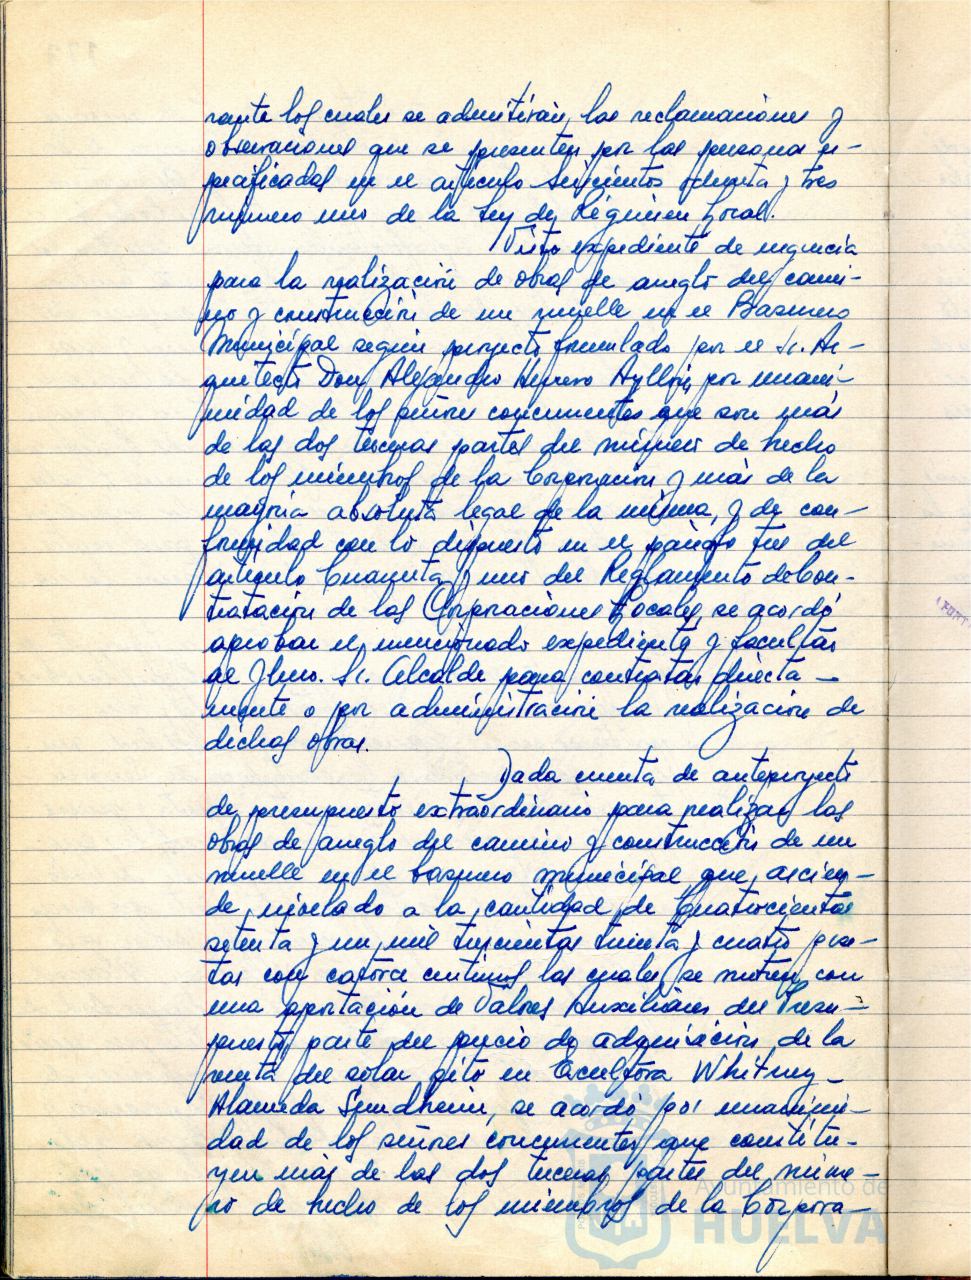 rante los cuales se admitirán las reclamaciones y
observaciones que se presenten por las personas es-
pecificadas en el artículo seiscientos ochenta y tres
número uno de la Ley de Régimen Local.
Visto expediente de urgencia
para la realización de obras de arreglo del cami-
no y construcción de un muelle en el Basurero
Municipal según proyecto formulado por el Sr. Ar-
quitecto Don Alejandro Herrero Ayllón, por unani-
midad de los señores concurrentes que son más
de las dos terceras partes del número de hecho
de los miembros de la Corporación y más de la
mayoría absoluta legal de la misma, y de con-
formidad con lo dispuesto en el párrafo tres del
artículo Cuarenta y uno del Reglamento de Con-
tratación de las Corporaciones Locales, se acordó
aprobar el mencionado expediente y facultar
al Ilmo. Sr. Alcalde para contratar directa-
mente o por administración la realización de
dichas obras.
Dada cuenta de anteproyecto
de presupuesto extraordinario para realizar las
obras de arreglo del camino y construcción de un
muelle en el basurero municipal que, ascien-
de, nivelado a la cantidad de Cuatrocientas
setenta y un mil trescientas treinta y cuatro pese-
tas con catorce céntimos las cuales se nutren con
una aportación de Valores Auxiliares del Presu-
puesto, parte del precio de adquisición de la
venta del solar sito en Escultora Whitney-
Alameda Sundheim, se acordó por unanimi-
dad de los señores concurrentes que constitu-
yen más de las dos terceras partes del núme-
ro de hecho de los miembros de la Corpora-
Ayuntamiento de
HUELVA